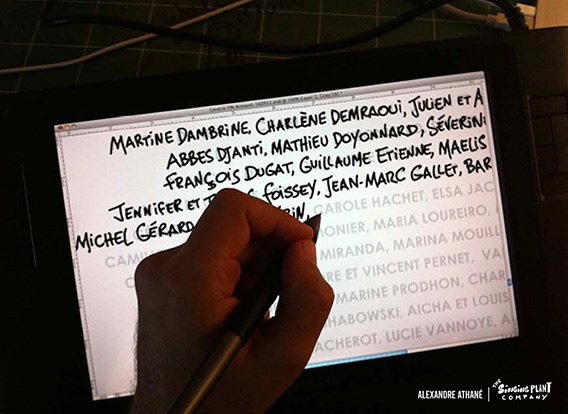 MARTINE DAMBRINE, CHARLÈNE DEMRAOUI, JULIEN ET A
ABBES DJANTI, MATHIEU DOYONNARD, SÉVERIN
FRANÇOIS DUGAT, GUILLAUME ETIENNE, MAELIS
JENNIFER ET FOISSEY, JEAN-MARC GALLET, BAR
MICHEL GÉRARD CAROLE HACHET, ELSA JAC
CAMI MONIER, MARIA LOUREIRO,
MIRANDA, MARINA MOUILL
RE ET VINCENT PERNET, VA
MARINE PRODHON, CHAR
HABOWSKI, AICHA ET LOUIS
ACHEROT, LUCIE VANNOYE, A
ALEXANDRE ATHANÉ | THE SINGING PLANT COMPANY